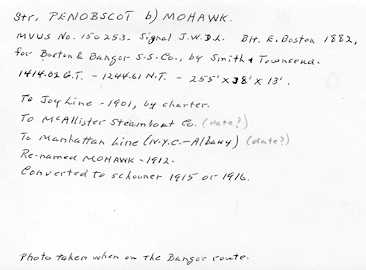 Str. PENOBSCOT b) MOHAWK.
MVUS No. 150253. Signal J.W.D.L. Blt. E. Boston 1882,
for Boston & Bangor S.S. Co., by Smith & Townsend.
1414.02 G.T. - 1244.61 N.T. - 255' x 38' x 13'.
To Joy Line - 1901, by charter.
To McAllister Steamboat Co. (date?)
To Manhattan Line (N.Y.C. - Albany) (date?)
Re-named MOHAWK - 1912.
Converted to schooner 1915 or 1916.
Photo taken when on the Bangor route.